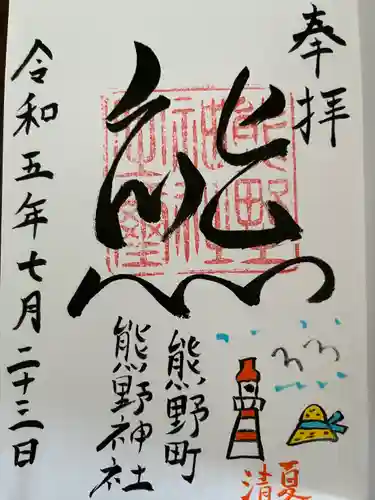 奉拝
熊
熊野神社之璽
熊野町
熊野神社
令和五年七月二十三日
夏
清